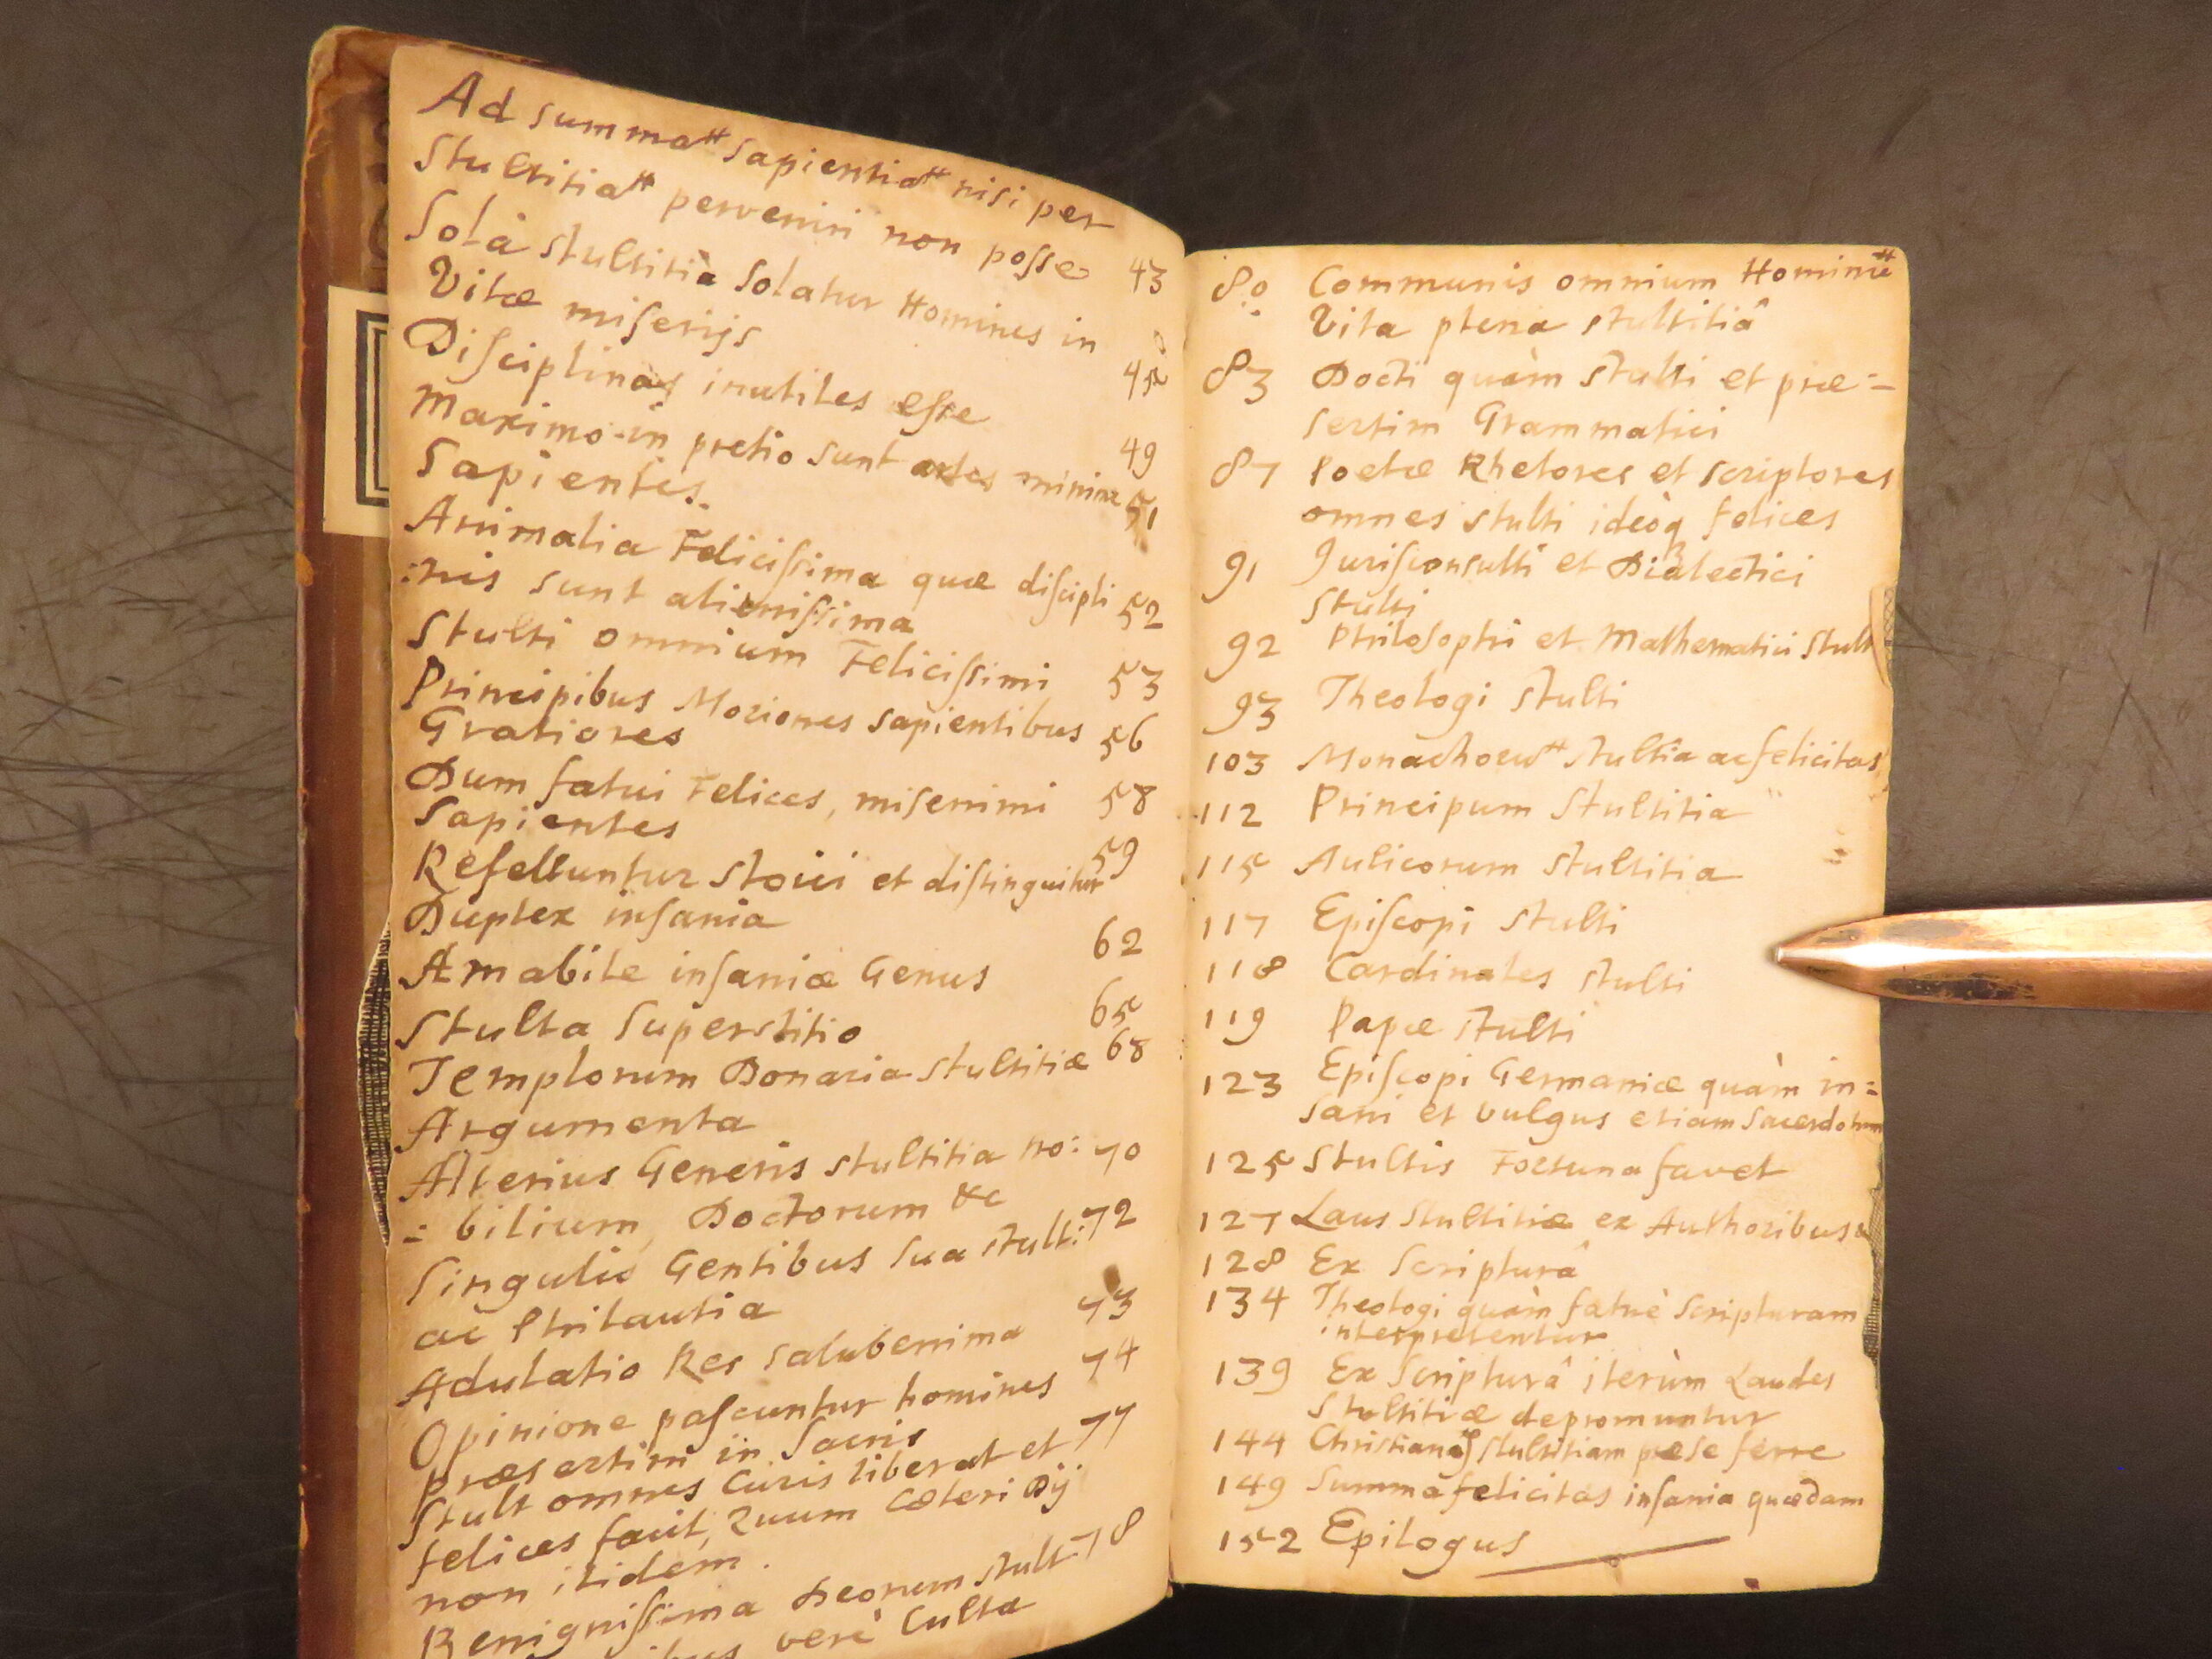 Ad summa͞ sapientia͞ nisi per
Stultitia͞ perveniri non posse 43
Solâ stultitiâ Solatur Homines in
Vitæ miserijs 45
Disciplinas inutiles esse 49
Maximo in pretio sunt artes minime 51
Sapientes.
Animalia Felicissima quæ discipli 52
:nis sunt alienissima
Stulti omnium Felicissimi 53
Principibus Moriones sapientibus 56
Gratiores
Dum fatui Felices, miserrimi 58
Sapientes
Refelluntur Stoici et distinguitur 59
Duplex insania
Amabile insaniæ Genus 62
Stulta Superstitio 65
Templorum Donaria stultitiæ 68
Argumenta
Alterius Generis stultitia no: 70
= bilium, Doctorum &c
Singulis Gentibus sua stult: 72
ac Philautia
Adulatio Res saluberrima 73
Opinione pascuntur homines 74
præsertim in Sacris
Stult omnes Curis liberat et 77
felices facit, Quum Cæteri Dij
non itidem.
Benignissima Deorum stult 78
verè Culta
80 Communis omnium Hominū
Vita plena stultitiâ
83 Docti quàm stulti et præ=
sertim Grammatici
87 Poetæ Rhetores et scriptores
omnes stulti ideòq felices
91 Jurisconsulti et Dialectici
Stulti
92 Philosophi et Mathematici Stult
93 Theologi Stulti
103 Monachoru͞ stultia ac felicitas
112 Principum Stultitia
115 Aulicorum Stultitia
117 Episcopi Stulti
118 Cardinales stulti
119 Papæ stulti
123 Episcopi Germaniæ quàm in=
sani et vulgus etiam Sacerdotum
125 Stultis Fortuna favet
127 Laus Stultitiæ ex Authoribus
128 Ex Scripturâ
134 Theologi quàm fatuè Scripturam
interpretentur
139 Ex Scripturâ iterùm Laudes
Stultitiæ depromuntur
144 Christianos stultitiam præ se ferre
149 Summa felicitas insania quædam
152 Epilogus